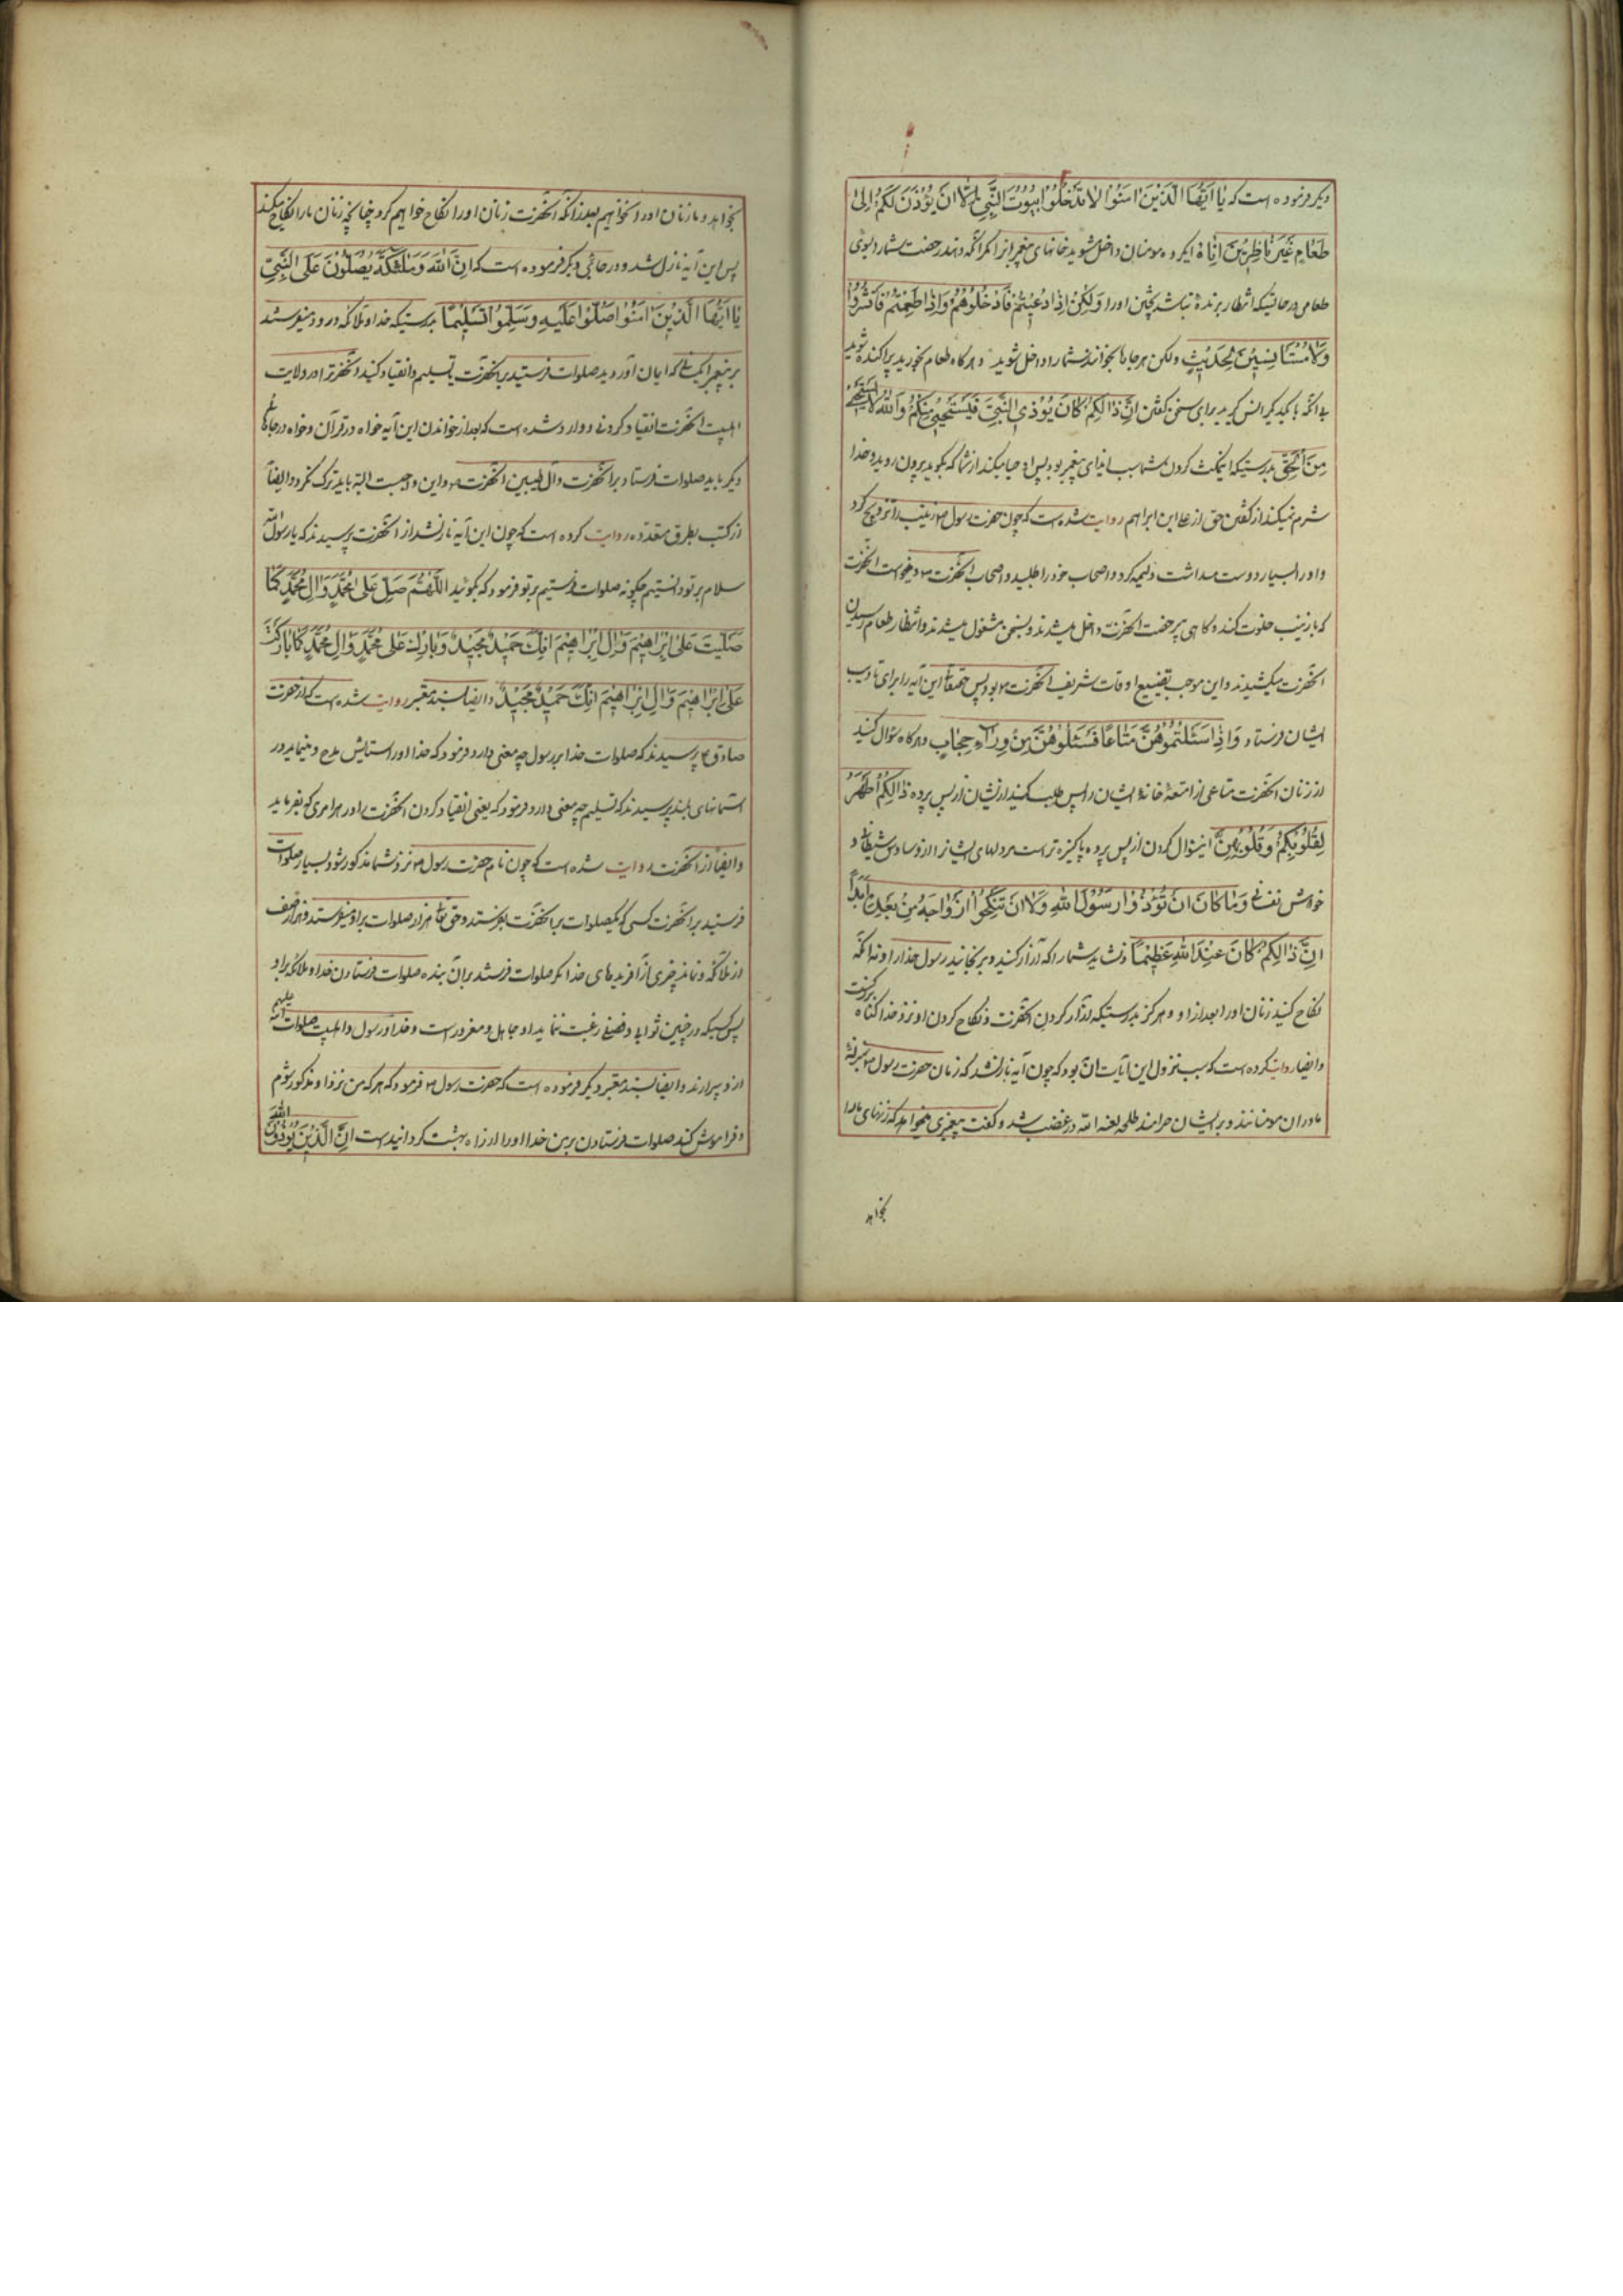 دیکر فرموده است که یٰا اَیُّهَا الَّذینَ اٰمَنُوا لاٰ تَدْخُلُوا بُیُوتَ النَّبِیِّ اِلّاٰ اَنْ یُؤْذَنَ لَکُمْ اِلیٰ
طَعٰامٍ غَیْرَ نٰاظِرینَ اِنٰاهُ ایکروه مومنان داخل مشوید خانهای پیغمبر را مکر آنکه دهند رخصت شما را بسوی
طعامی در حالتیکه انتظار برنده نباشید پختن اورا وَلٰکِنْ اِذٰا دُعیتُمْ فَادْخُلُوهُمْ وَاِذٰا طَعِمْتُمْ فَانْتَشِرُوا
وَلاٰ مُسْتَانِسینَ لِحَدیثٍ ولکن هرجا بخوانند شما را داخل شوید و هرکاه طعام بخورید پراکنده شوید
بی آنکه با یکدیکر انس کیرید برای سخن کفتن اِنَّ ذٰالِکُمْ کٰانَ یُوذِی النَّبِیَّ فَیَسْتَحْیی مِنْکُمْ وَاللهُ لاٰ یَسْتَحْیی
مِنَ الْحَقِّ بدرستیکه این مکث کردن شما سبب ایذای پیغمبر بود پس او حیا میکند از شما که بکوید بیرون روید و خدا
شرم نمیکند از کفتن حق از علی ابن ابراهیم روایت شده است که چون حضرت رسول ص زینب را تزویج کرد
و اورا بسیار دوست میداشت ولیمه کرد و اصحاب خود را طلبید و اصحاب آنحضرت ص و میخواست آنحضرت
که با زینب خلوت کند و کاهی بی رخصت آنحضرت داخل میشدند و بسخن مشغول میشدند و انتظار طعام رسیدن
آنحضرت میکشیدند و این موجب تضییع اوقات شریف آنحضرت ص بود پس حقتعالی این آیه را برای تادیب
ایشان فرستاد وَاِذٰا سَئَلْتُمُوهُنَّ مَتٰاعًا فَسْئَلُوهُنَّ مِنْ وَرٰاءِ حِجٰابٍ و هرکاه سؤال کنید
از زنان آنحضرت متاعی از امتعهٔ خانهٔ ایشان را پس طلب کنید از ایشان از پس پرده ذٰالِکُمْ اَطْهَرُ
لِقُلُوبِکُمْ وَقُلُوبِهِنَّ این سؤال کردن از پس پرده پاکیزه تر است مر دلهای ایشانرا از وساوس شیطانی و
خواهش نفسانی وَمٰا کٰانَ اَنْ تُؤْذُوا رَسُولَ اللهِ وَلاٰ اَنْ تَنْکِحُوا اَزْوٰاجَهُ مِنْ بَعْدِهِ اَبَدًا
اِنَّ ذٰالِکُمْ کٰانَ عِنْدَ اللهِ عَظیمًا و نشاید شما را که آزار کنید و برنجانید رسول خدا را و نه آنکه
نکاح کنید زنان اورا بعد از او و هرکز بدرستیکه آزار کردن آنحضرت و نکاح کردن او نزد خدا کناه بزرکست
و ایضا روایت کرده است که سبب نزول این آیات آن بود که چون آیه نازل شد که زنان حضرت رسول ص بمنزلهٔ
مادران مومنانند و بر ایشان حرامند طلحه لعنه الله در غضب شد و کفت پیغمبر میخواهد که زنهای مارا
بخواهد
بخواهد و ما زنان اورا نخواهیم بعد از آنکه آنحضرت زنان اورا نکاح خواهیم کرد چنانچه زنان مارا نکاح میکند
پس این آیه نازل شد و در جائی دیکر فرموده است که اِنَّ اللهَ وَمَلٰئِکَتَهُ یُصَلُّونَ عَلَی النَّبِیِّ
یٰا اَیُّهَا الَّذینَ اٰمَنُوا صَلُّوا عَلَیْهِ وَسَلِّمُوا تَسْلیمًا بدرستیکه خدا و ملائکه درود میفرستند
بر پیغمبر ای کسانیکه ایمان آورده‌اید صلوات فرستید بر آنحضرت و تسلیم و انقیاد کنید آنحضرترا در ولایت
اهلبیت آنحضرت انقیاد کردنی و وارد شده است که بعد از خواندن این آیه خواه در قرآن و خواه در جای
دیکر باید صلوات فرستاد بر آنحضرت و آل طیبین آنحضرت ص و این واجبست البته باید ترک نکرد و ایضاً
از کتب بطرق متعدده روایت کرده است که چون این آیه نازلشد از آنحضرت پرسیدند که یا رسول الله
سلام بر تو دانستیم چکونه صلوات فرستیم بر تو فرمود که بکوئید اَللّٰهُمَّ صَلِّ عَلیٰ مُحَمَّدٍ وَاٰلِ مُحَمَّدٍ کَمٰا
صَلَّیْتَ عَلیٰ اِبْرٰاهیمَ وَاٰلِ اِبْرٰاهیمَ اِنَّکَ حَمیدٌ مَجیدٌ وَبٰارِکْ عَلیٰ مُحَمَّدٍ وَاٰلِ مُحَمَّدٍ کَمٰا بٰارَکْتَ
عَلیٰ اِبْرٰاهیمَ وَاٰلِ اِبْرٰاهیمَ اِنَّکَ حَمیدٌ مَجیدٌ و ایضا بسند معتبر روایت شده است که از حضرت
صادق ع پرسیدند که صلوات خدا بر رسول چه معنی دارد فرمود که خدا اورا ستایش و مدح مینماید در
آسمانهای بلند پرسیدند که تسلیم چه معنی دارد فرمود که یعنی انقیاد کردن آنحضرت را در هر امری که بفرماید
و ایضاً از آنحضرت روایت شده است که چون نام حضرت رسول ص نزد شما مذکور شود بسیار صلوات
فرستید بر آنحضرت کسی که یکصلوات بر آنحضرت بفرستد حق تعالی هزار صلوات بر او میفرستد در هزار صف
از ملائکه و نماند چیزی از آفریدهای خدا مکر صلوات فرستد بر آن بنده صلوات فرستادن خدا و ملائکه بر او
پس کسیکه در چنین ثوابی و فضلی رغبت ننماید او جاهل و مغرور است و خدا و رسول و اهلبیت صلوات الله علیهم
از او بیزارند و ایضا بسند معتبر دیکر فرموده است که حضرت رسول ص فرمود که هرکه من نزد او مذکور شوم
و فراموش کند صلوات فرستادن بر من خدا اورا از راه بهشت کردانیده است اِنَّ الَّذینَ یُؤْذُونَ اللهَ